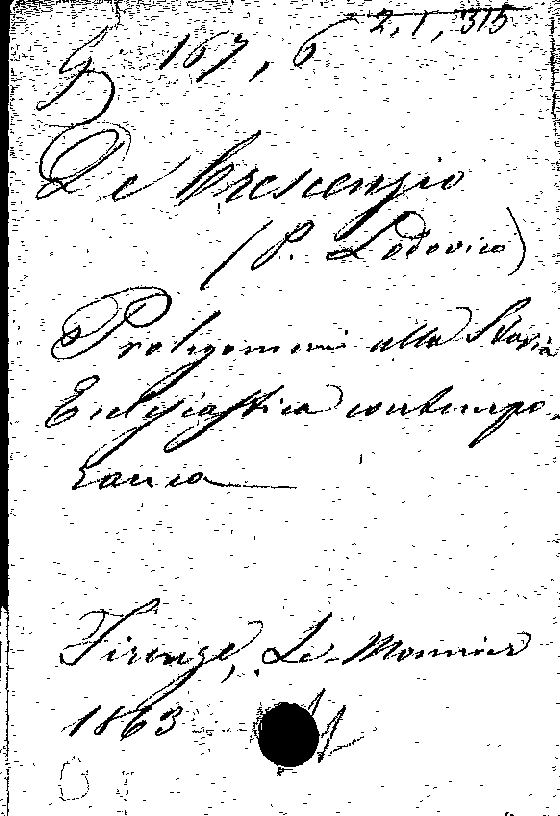 G 167, 6 2, 1, 315
De Crescenzio
(P. Lodovico)
Prolegomeni alla Storia
Ecclesiastica contempo-
ranea
Firenze, Le-Monnier
1863